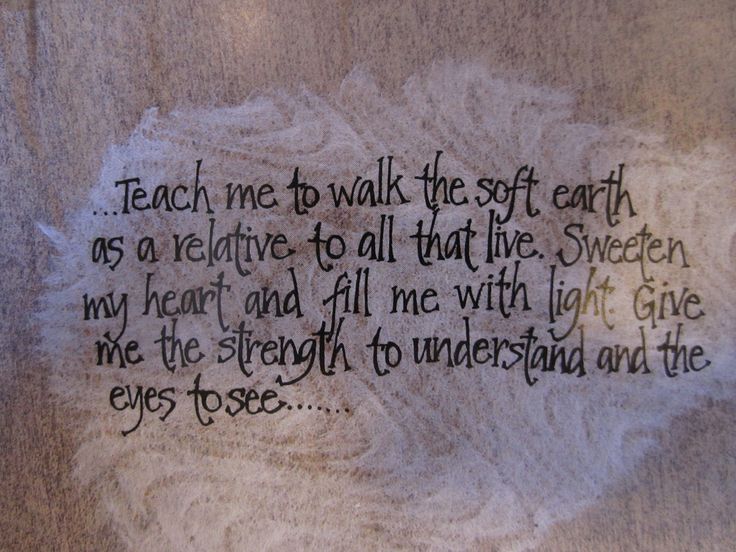 ...Teach me to walk the soft earth
as a relative to all that live. Sweeten
my heart and fill me with light. Give
me the strength to understand and the
eyes to see.......